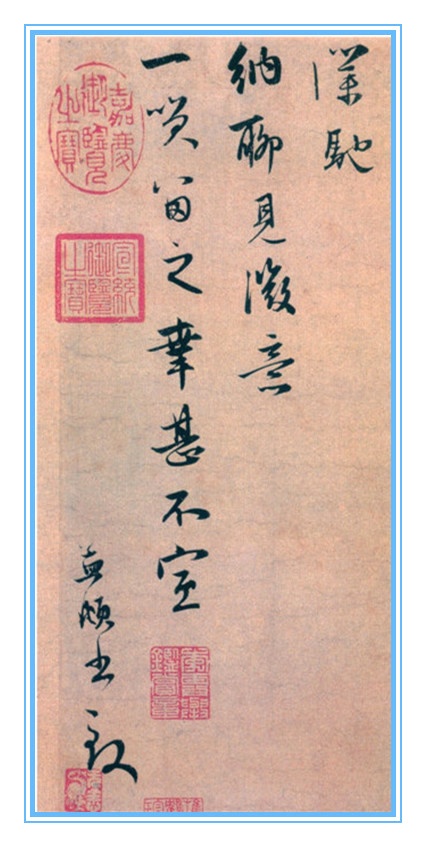 謹馳
納聊見微意
一笑留之幸甚不宣
孟頫書致
嘉慶御覽之寶
宣統御覽之寶